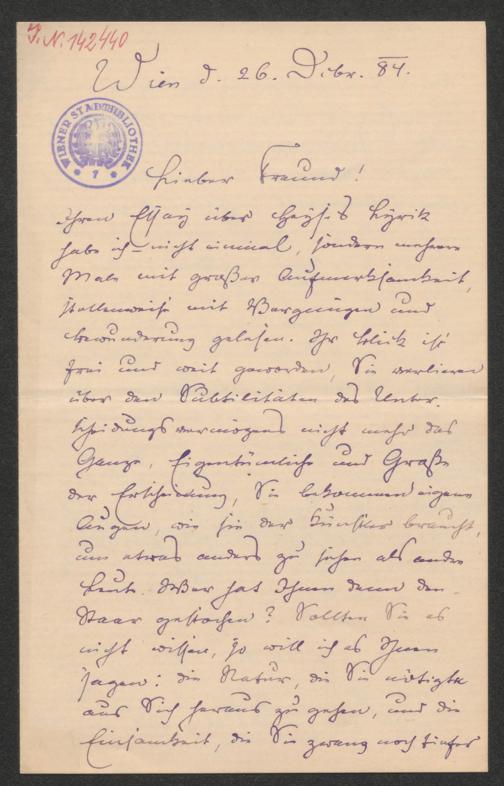 J. N. 142440
Wien d. 26. Dcbr. 84.
WIENER STADTBIBLIOTHEK
* 1 *
Lieber Freund!
Ihren Essay über Heyse's Lyrik
habe ich nicht einmal, sondern mehrere
Male mit großer Aufmerksamkeit,
stellenweise mit Vergnügen und
Bewunderung gelesen. Ihr Blick ist
frei und weit geworden, Sie verlieren
über den Subtilitäten des Unter-
scheidungsvermögens nicht mehr das
Ganze, Eigentümliche und Große
der Erscheinung, Sie bekommen eigene
Augen, wie sie der Künstler braucht,
um etwas anders zu sehen als andre
Leute. Wer hat Ihnen denn den
Staar gestochen? Sollten Sie es
nicht wissen, so will ich es Ihnen
sagen: die Natur, die Sie nötigte
aus Sich heraus zu gehen, und die
Einsamkeit, die Sie zwang noch tiefer